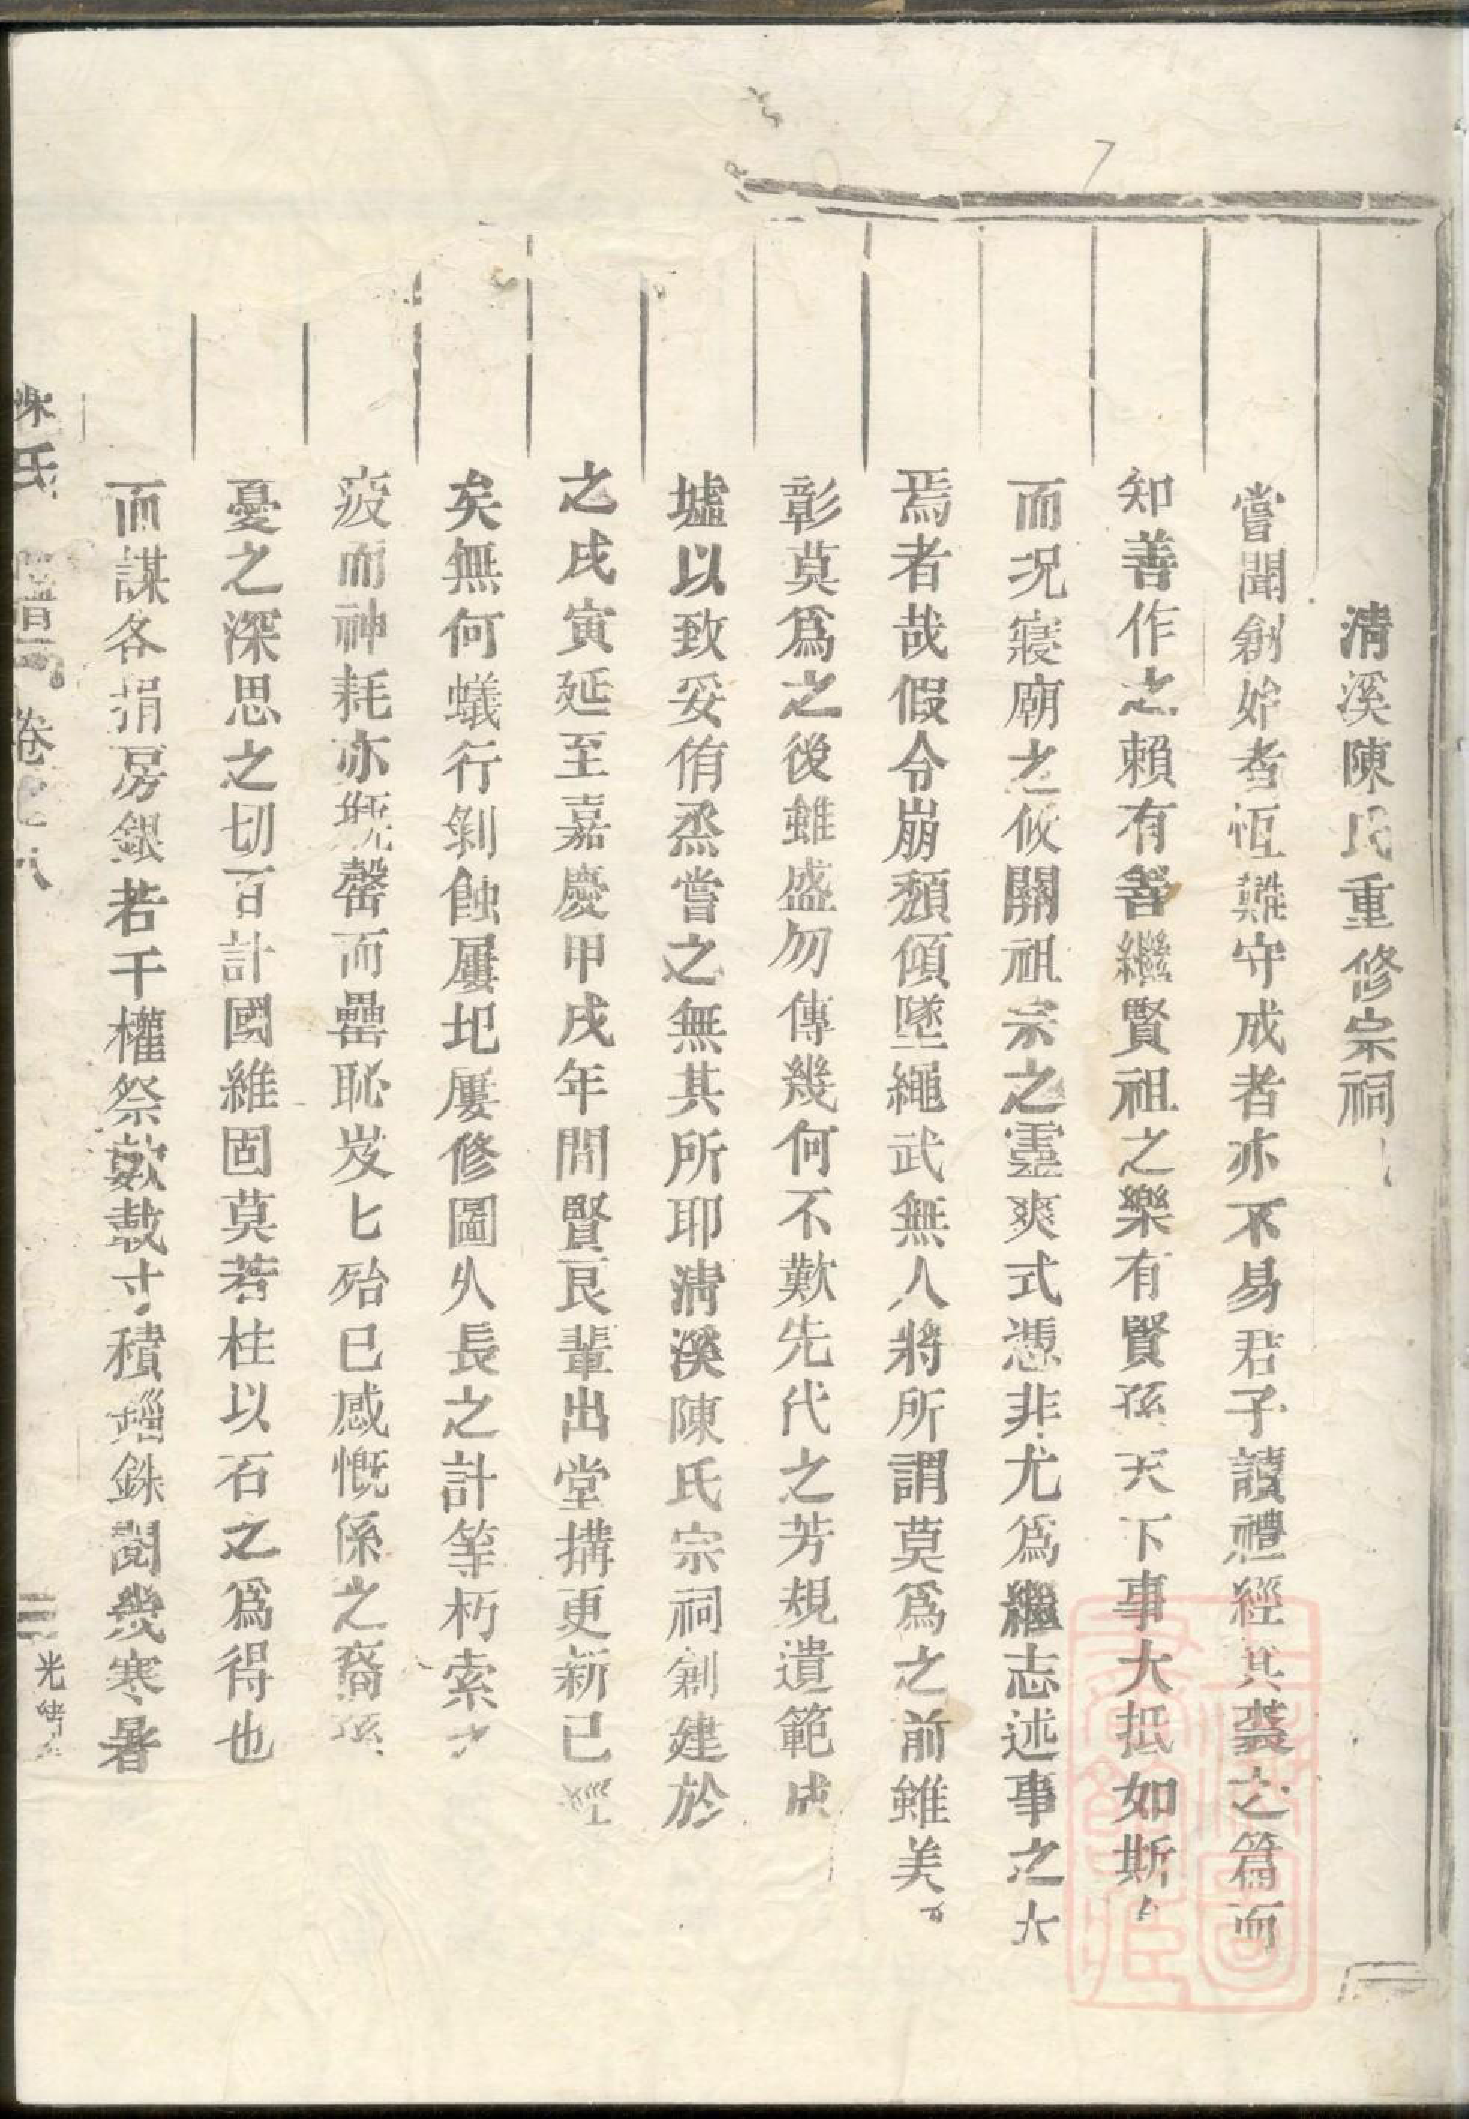 清溪陳氏重修宗祠
嘗聞創始者恆難守成者亦不易君子讀禮經其裘之篇而
知善作之賴有善繼賢祖之樂有賢孫天下事大抵如斯
而況寢廟之攸關祖宗之靈爽式憑非尤爲繼志述事之大
焉者哉假令崩頽傾墜繩武無人將所謂莫爲之前雖美
彰莫爲之後雖盛勿傳幾何不歎先代之芳規遺範成
墟以致妥侑烝嘗之無其所耶清溪陳氏宗祠創建於
之戌寅延至嘉慶甲戌年間賢良輩出堂搆更新已經
矣無何蟻行剝蝕屢圮屢修圖久長之計等朽索之
疲而神耗亦瓶罄而罍恥岌七殆已感慨係之裔孫
憂之深思之切百計國維固莫若柱以石之爲得也
而謀各捐房銀若干權祭數載寸積錙銖閱幾寒暑
陳氏 譜 卷之八
三 光裕
7